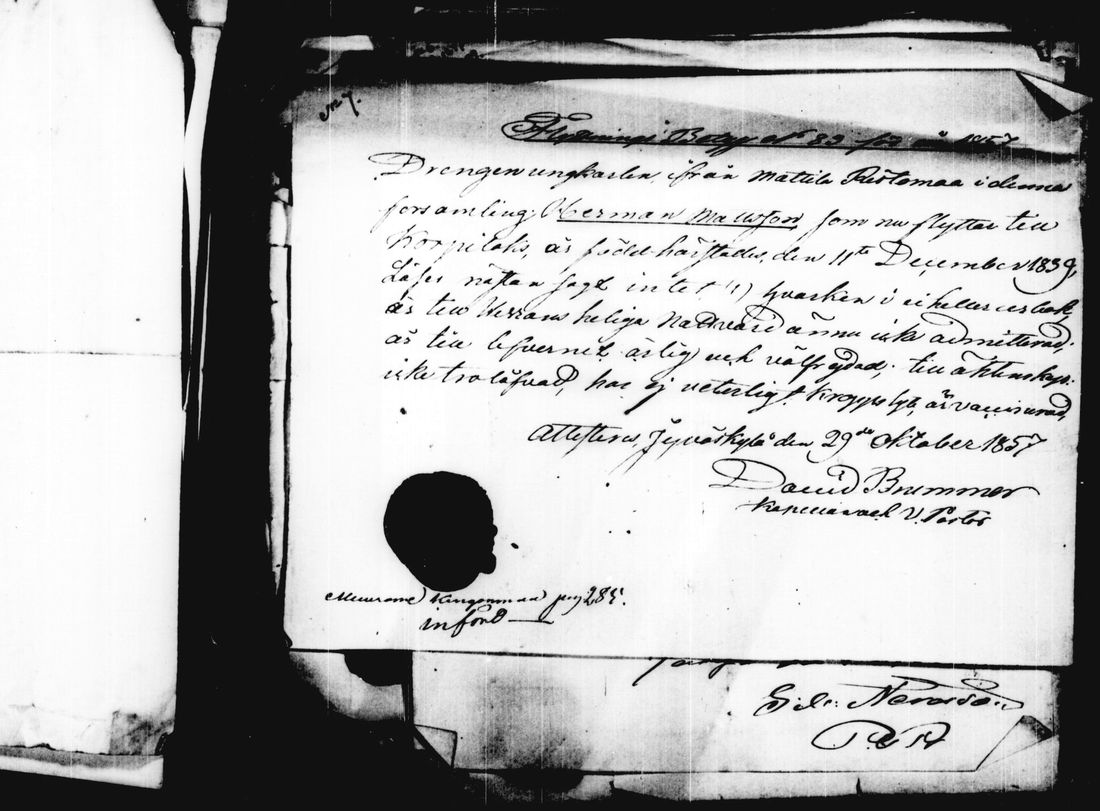 No 7.
Flyttnings Betyg No 83 för år 1857
Drengen ungkarlen, ifrån Mattila Ristamaa i denna
församling, Herman Mattsson, som nu flyttar till
Korpilaks, är född härstädes, den 11te December 1839,
Läser nästan sagt intet (!) hvarken i eller bok
är till Herrans heliga Nattvard ännu icke admitterad;
är till lefvernet ärlig och välfrejdad; till äktenskap
icke trolåfvad, har ej veterligt kropps lyte, är vaccinerad,
Attesteras, Jyväskylä den 29de Oktober 1857
David Brummer
Kapellan och V. Pastor
Muurame Kingenmaa pag 285.
införd